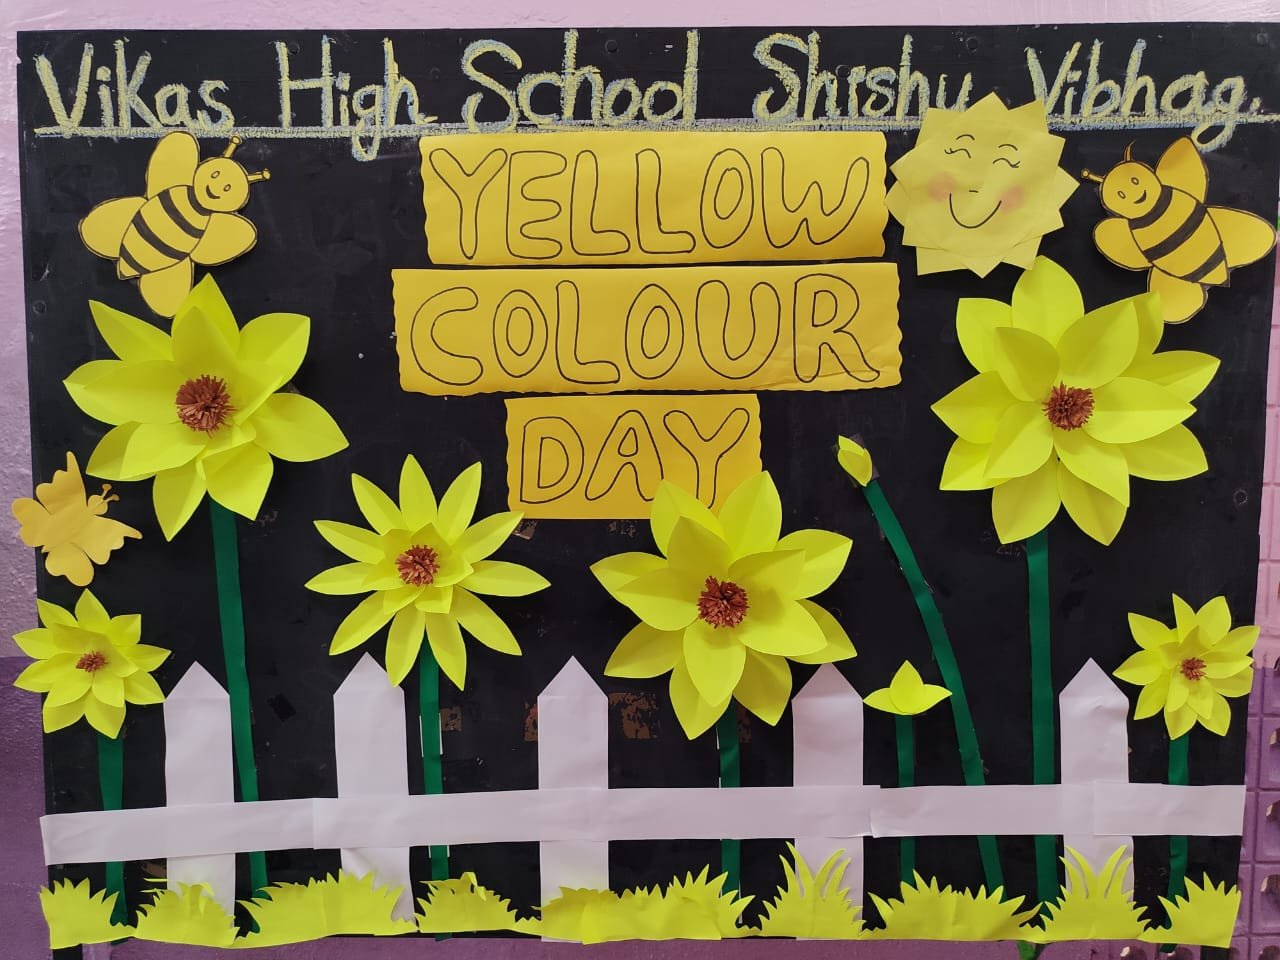 Vikas High School Shishu Vibhag.
YELLOW
COLOUR
DAY